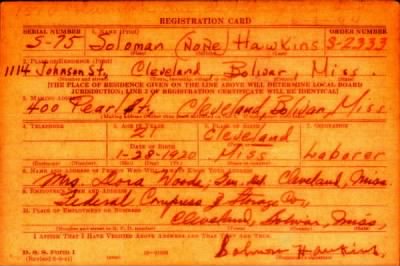 REGISTRATION CARD
SERIAL NUMBER 1. NAME (Print) ORDER NUMBER
S-75 Soloman (None) Hawkins S-2333
2. PLACE OF RESIDENCE (Print)
1114 Johnson St, Cleveland Bolivar, Miss.
[THE PLACE OF RESIDENCE GIVEN ON THE LINE ABOVE WILL DETERMINE LOCAL BOARD
JURISDICTION; LINE 2 OF REGISTRATION CERTIFICATE WILL BE IDENTICAL]
3. MAILING ADDRESS
400 Pearl St, Cleveland, Bolivar, Miss
4. TELEPHONE 5. AGE IN YEARS 6. PLACE OF BIRTH 7. OCCUPATION
Cleveland
DATE OF BIRTH
1-28-1920 Miss Laborer
8. NAME AND ADDRESS OF PERSON WHO WILL ALWAYS KNOW YOUR ADDRESS
Mrs. Woods, Cleveland, Miss.
9. EMPLOYER'S NAME AND ADDRESS
Federal Compress & Storage Co,
10. PLACE OF EMPLOYMENT OR BUSINESS
Cleveland, Bolivar Miss,
I AFFIRM THAT I HAVE VERIFIED ABOVE ANSWERS AND THAT THEY ARE TRUE.
D. S. S. FORM 1
Soloman Hawkins